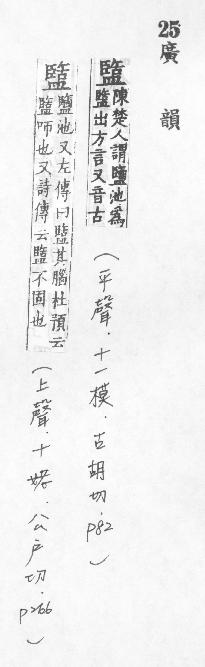 25廣韻
盬 陳楚人謂鹽池爲
盬出方言又音古
(平聲．十一模．古胡切．p82)
盬 鹽池又左傳曰盬其腦杜預云
盬㖷也又詩傳云盬不固也
(上聲．十姥．公戶切．p266)